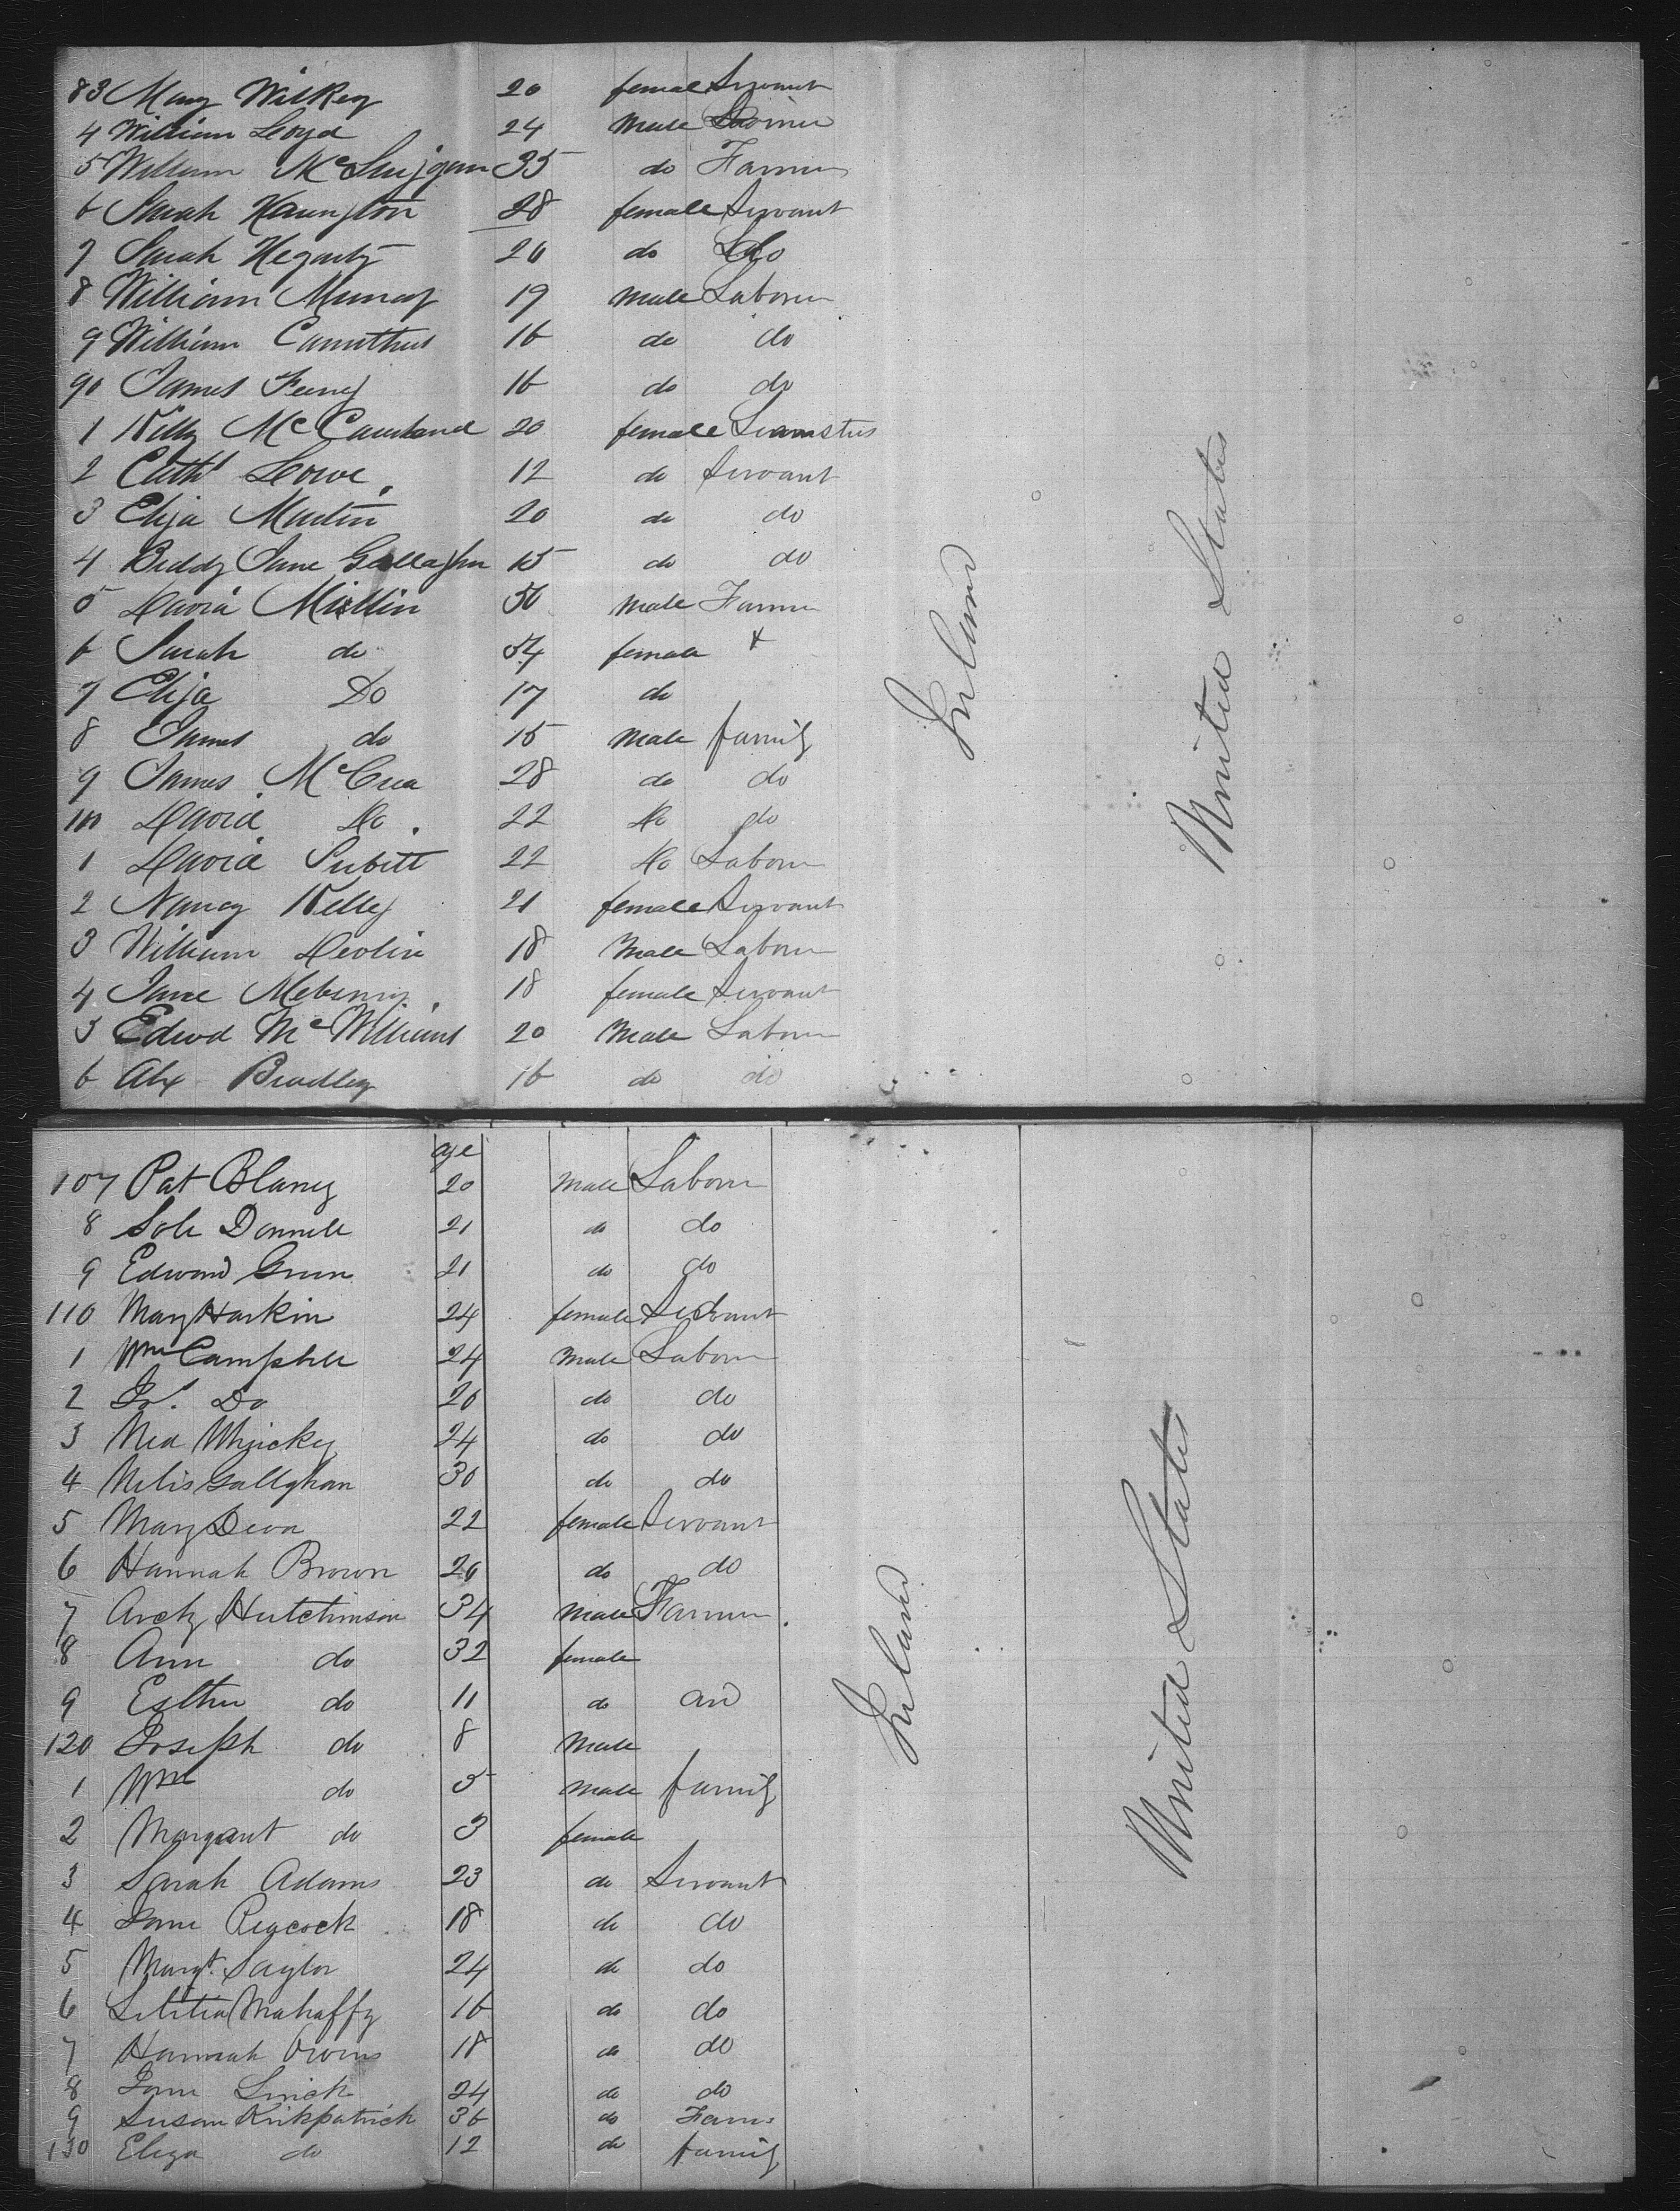 83 Mary Wilkey 20 female Servant
4 William Loyd 24 Male
5 William McShijgan 35 do Farmer
6 Sarah Haunfton 28 female Servant
7 Sarah Hegarty 20 do do
8 William Murray 19 Male Laborer
9 William Carruthus 16 do do
90 James Feeny 16 do do
1 Kitty McCausland 20 female Seamstres
2 Cath Lowe 12 do Servant
3 Eliza Martin 20 do do
4 Biddy Jane Gallagher 15 do do
5 David Mislin 50 Male Farmer
6 Sarah do 54 female
7 Eliza Do 17 do
8 James do 15 Male family
9 James McCrea 28 do do
100 David Do 22 Do do
1 David Pubitt 22 Do Laborer
2 Nancy Kelly 21 female Servant
3 William Devlin 18 Male Laborer
4 Jane 18 female Servant
5 Edwd McWilliams 20 Male Laborer
6 Alex Bradley 16 do do
Ireland
United States
age
107 Pat Blaney 20 Male Laborer
8 Sole Donnell 21 do do
9 Edward Green 21 do do
110 Mary Harkin 24 female Servant
1 Wm Campbell 24 Male Laborer
2 Jos. Do 20 do do
3 Ned 24 do do
4 Nelis Gallghan 30 do do
5 Mary Deva 22 female Servant
6 Hannah Brown 20 do do
7 Archy Hutchinson 34 Male Farmer
8 Ann do 32 female
9 Esther do 11 do and
120 Joseph do 8 Male
1 Wm do 5 Male family
2 Margaret do 3 female
3 Sarah Adams 23 do Servant
4 Jane Peacock 18 do do
5 Margt. Saylor 24 do do
6 Letitia Mahaffy 16 do do
7 Hannah Owens 18 do do
8 Jane Linick 24 do do
9 Susan Kirkpatrick 36 do Farmer
130 Eliza do 12 do family
Ireland
United States